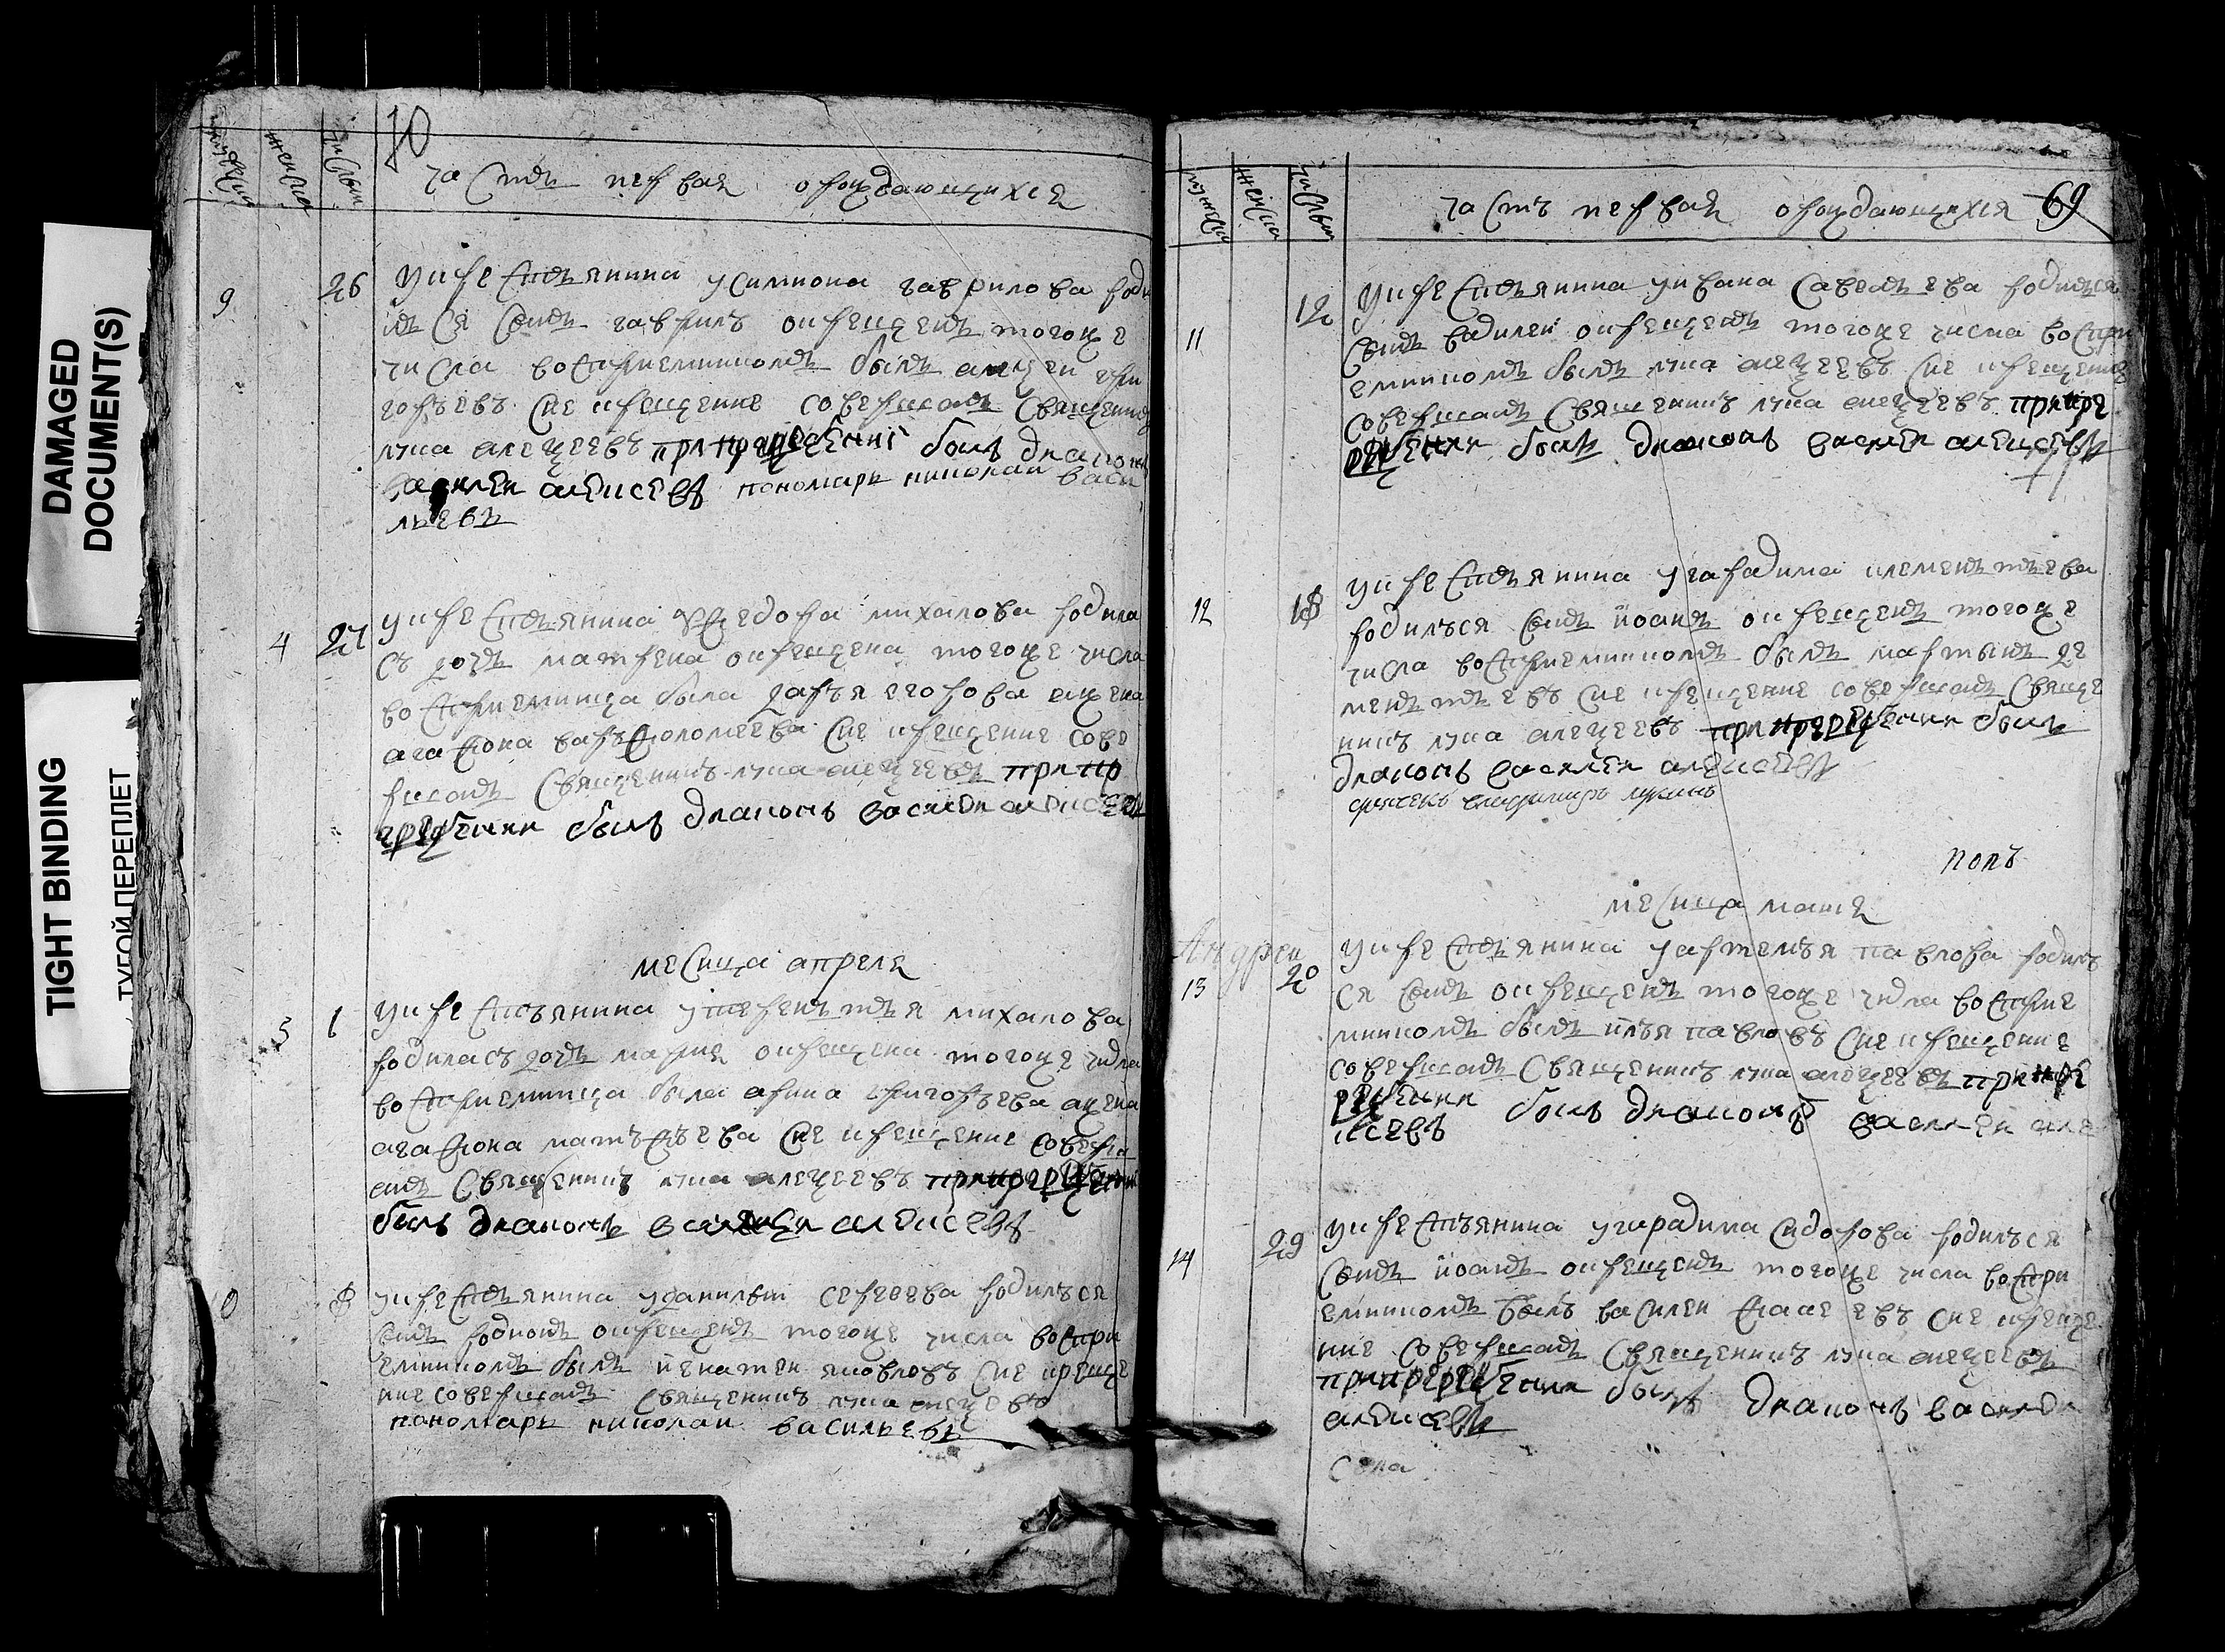 DAMAGED
DOCUMENT(S)
TIGHT BINDING
ТУГОЙ ПЕРЕПЛЕТ
70
часть первая о рождающихся
9
26
у крестьянина у симиона гаврилова роди
лся сынъ гаврилъ окрещенъ того же
числа восприемникомъ былъ алексеи гри
горъевъ сие крещение совершалъ священникъ
лука алеѯеевъ при крещении былъ диаконъ
василеи алексеевъ пономарь николаи васи
льевъ
4
27
у крестьянина ѳедора михалова родила
съ дочь матрена окрещена того же числа
восприемница была дарья егорова жена
агафона варъфоломеева сие крещение сове
ршалъ священникъ лука алеѯеевъ при
былъ диаконъ василеи алексеевъ
месица апреля
5
1
у крестъянина у терентия михалова
родиласъ дочь мария окрещена того же числа
восприемница была арина григоръева жена
агафона матъфъева сие крещение соверш
алъ священникъ лука алеѯеевъ при
былъ диаконъ василеи алексеевъ
8
у крестьянина у данилы сергеева родился
сынъ родионъ окрещенъ того же числа воспри
емникомъ былъ игнатеи яковлевъ сие креще
ние совершалъ священникъ лука алеѯевъ
пономарь николаи васильевъ
69
часть первая о рождающихся
11
12
у крестьянина у ивана савельева родился
сынъ василеи окрещенъ того же числа воспри
емникомъ былъ лука алеѯеевъ сие крещение
совершалъ священникъ лука алеѯеевъ при
былъ диаконъ василеи алексеевъ
12
18
у крестьянина у гарадима клементьева
родилъся сынъ иоанъ окрещенъ того же
числа восприемникомъ былъ мартынъ де
ментьевъ сие крещение совершалъ свяще
никъ лука алеѯеевъ при былъ
диаконъ василеи алексеевъ
дьячекъ владимиръ лукинъ
попъ
месица маия
Андреи
13
20
у крестьянина у артемъя павлова родилъ
ся сынъ окрещенъ того же числа восприе
мникомъ былъ илъя павловъ сие крещение
совершалъ священникъ лука алеѯеевъ при
былъ диаконъ василеи але
ксеевъ
14
29
у крестъянина у гарадима сидорова родилъся
сынъ иоанъ окрещенъ того же числа воспри
емникомъ былъ василеи сие креще
ние совершалъ священникъ лука алеѯеевъ
при былъ диаконъ василеи
алексеевъ